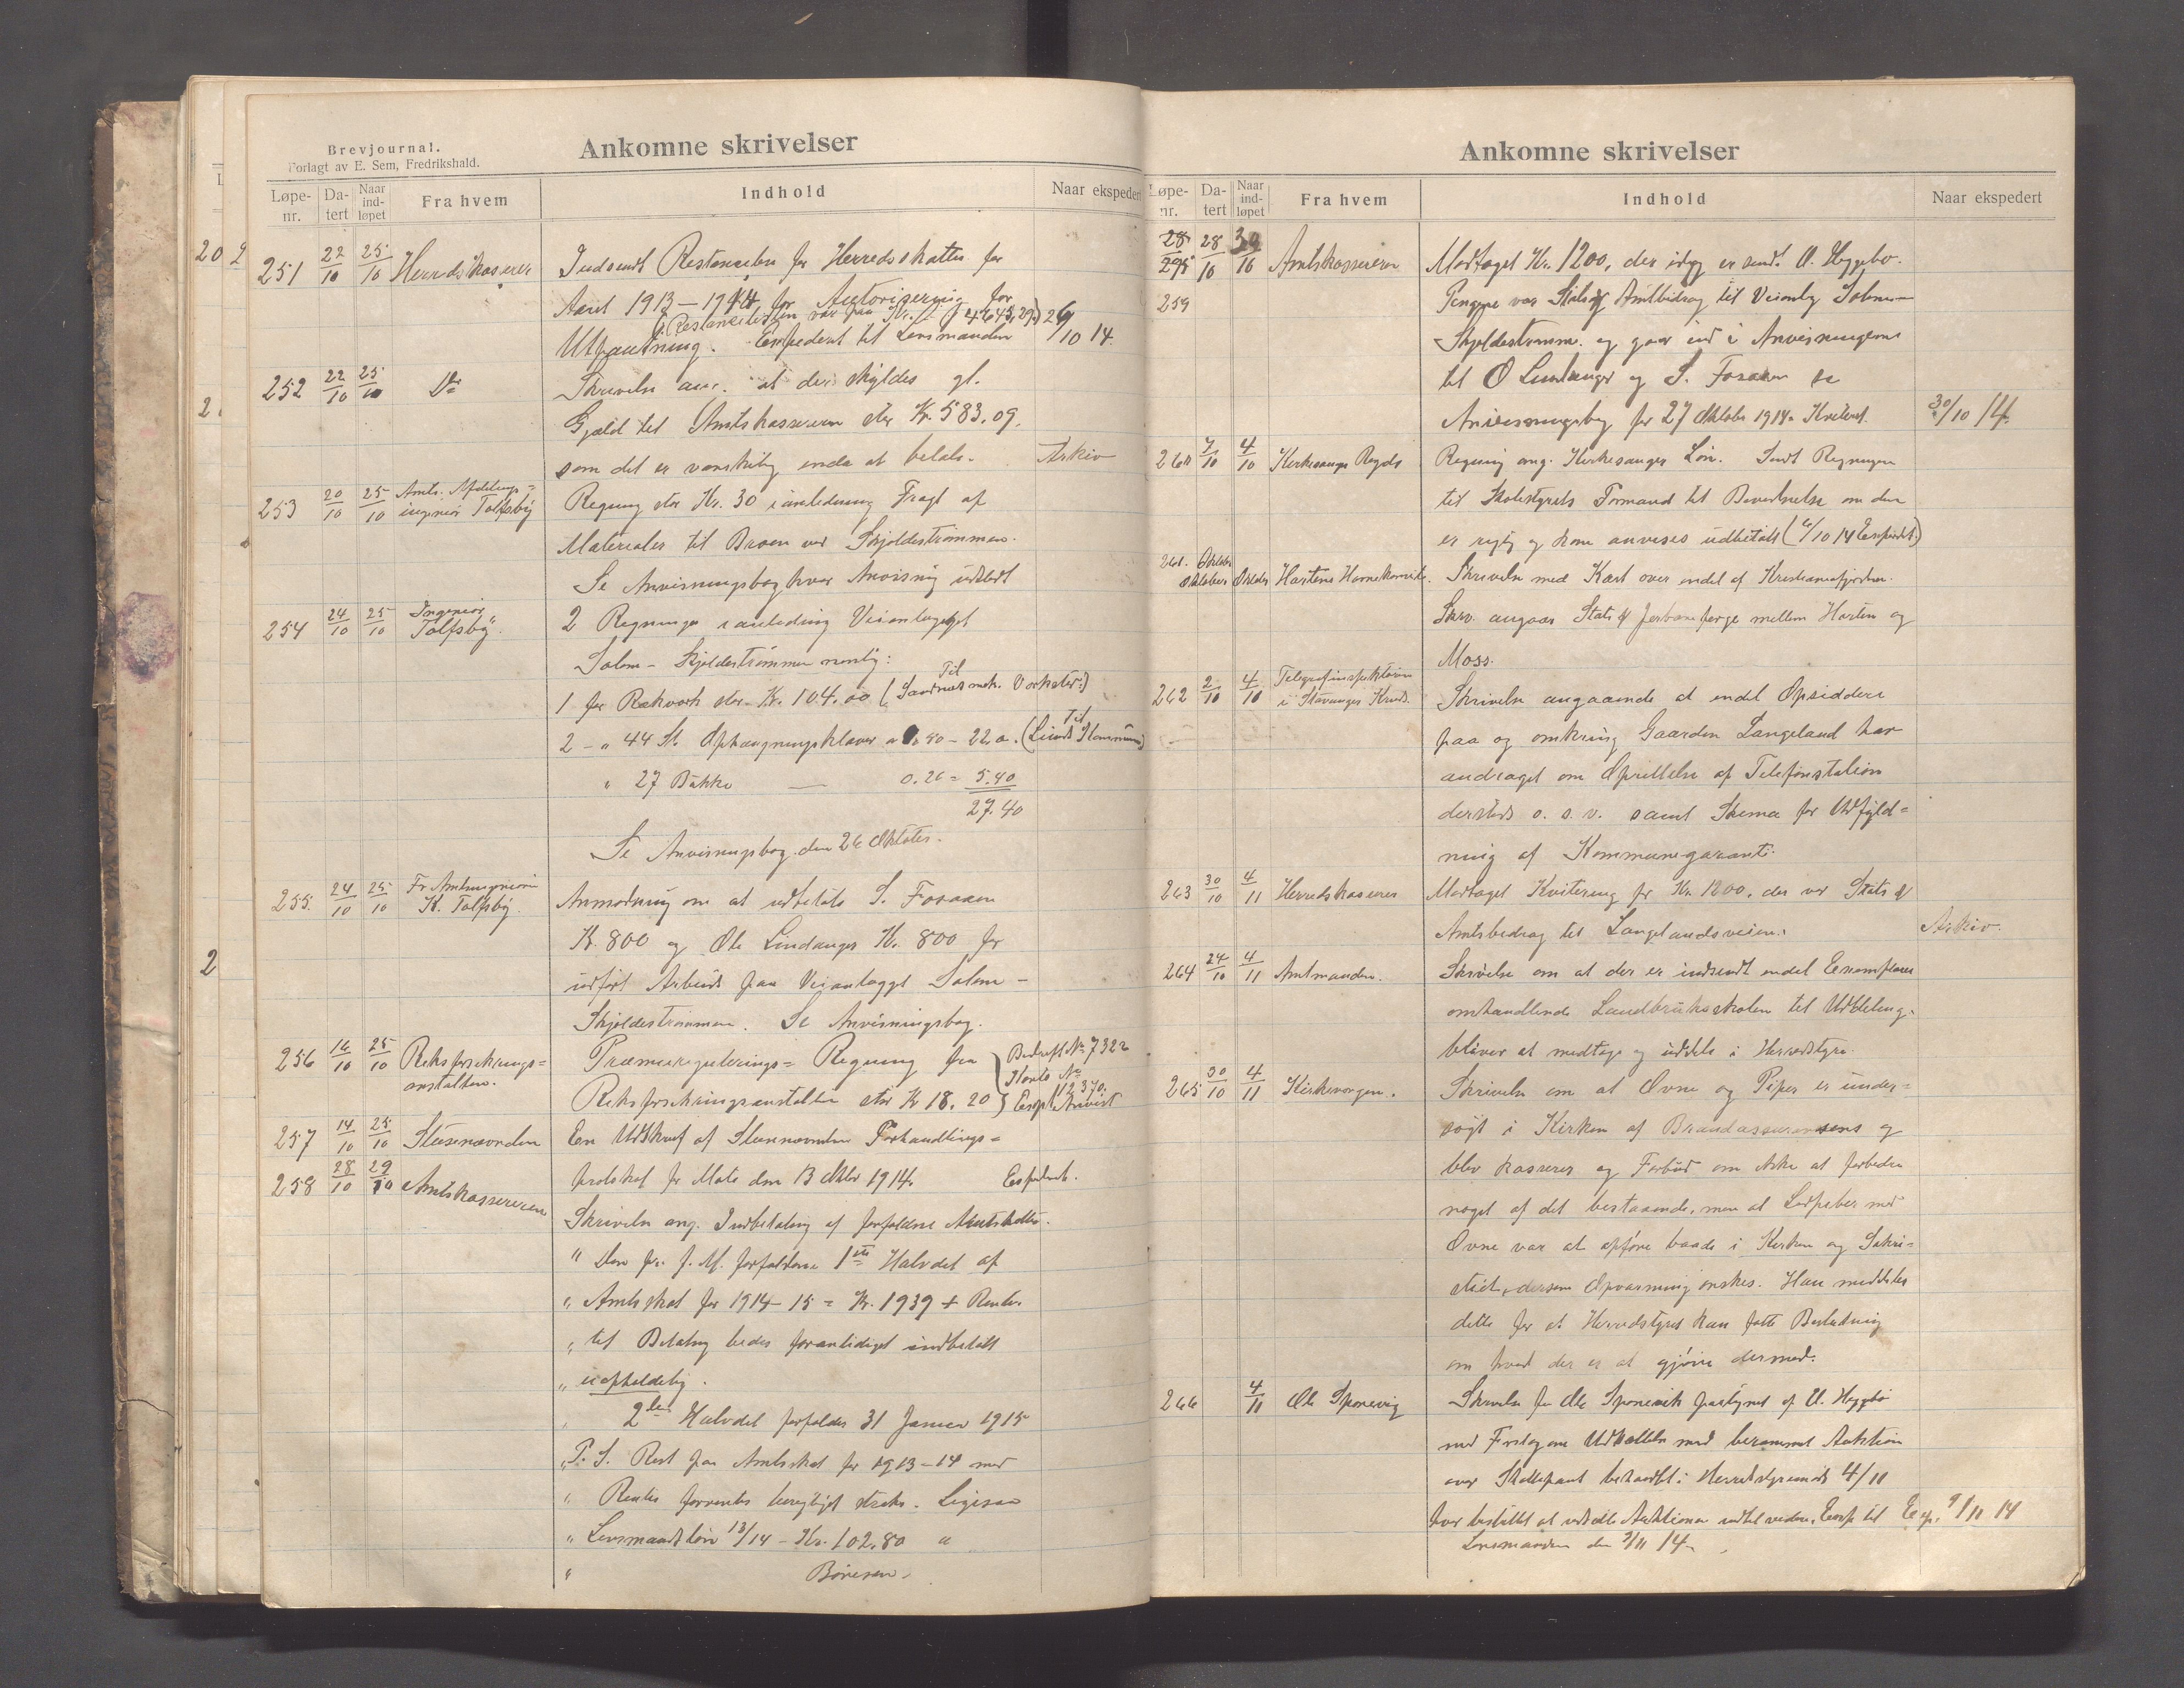 Brevjournal.
Forlagt av E. Sem, Fredrikshald.
Ankomne skrivelser
Løpe-nr. Da-tert Naar ind-løpet Fra hvem Indhold Naar ekspedert
251 22/10 25/10 Herredskasserer Indsendt Restancelen for Herredsskatten for
Aaret 1913–1914, for Autorisering for
(Restancelisten var paa Kr. 4643,29.) 26/10 14.
Utpantning. Expedert til Lensmanden
252 22/10 25/10 Do Skrivelse at der skyldes gl.
Gjæld til Amtskassereren stor Kr. 583.09,
som det er vanskelig enda at betale. Arkiv
253 20/10 25/10 Amts. Afdelings=
ingeniør Tolfsby Regning stor Kr. 30 i anledning Fragt af
Materialer til Broen ved Skjoldestrømmen.
Se Anvisningsbog hvor Anvisning utstedt
254 24/10 25/10 Ingeniør
Tolfsby. 2 Regninger i anledning Veianlægget
Solem – Skjoldestrømmen nemlig:
1 for Rækverk stor Kr. 104.00 (Til Sandnæs mek. Værksted:)
2 – " 44 St. Ophængningsklaver – 22.0. (Til
" 27 Bukke — 0.20 = 5.40
27.40
Se Anvisningsbog den 26 Oktober.
255. 24/10 25/10 Fr. Amtsingeniøren
K. Tolfsby. Anmodning om at udbetale S. Fosaaen
Kr. 800 og Ole Lindanger Kr. 800 for
udført Arbeide paa Veianlægget Solem –
Skjoldestrømmen. Se Anvisningsbog.
256 16/10 25/10 Riksforsikrings=
anstalten. Præmieregulerings= Regning fra Bedrift No 7322
Konto No 12370.
Riksforsikringsanstalten stor Kr 18.20 Exp. Anvist
257 14/10 25/10 Skjønsnævnden En Udskrift af Forhandlings=
258 28/10 29/10 Amtskassereren protokol for Møte den 13 Oktbr 1914. Expedert.
Skrivelse ang. Indbetaling af forfaldne Amtskatter.
" Den pr. f. M. forfaldne 1ste Halvdel af
" Amtsskat for 1914–15 = Kr. 1939 + Renter
" til Betaling bedes foranlediget indbetalt
" uopholdelig.
" 2den Halvdel forfalder 31 Januar 1915
" P.S. Rest paa Amtsskat for 1913–14 med
" Renter forventes straks. Ligesaa
" Lensmandsløn 13/14 – Kr. 102.80
" Børresen.
Ankomne skrivelser
Løpe-nr. Da-tert Naar ind-løpet Fra hvem Indhold Naar ekspedert
28 295 28/10 30/10 Amtskassereren Modtaget Kr. 1200, der idag er sendt O. Heggebø.
259 Pengene var Stats og Amtbidrag til Veianlæg Solem –
Skjoldestrømm. og gaar ind i Anvisningerne
til O Lindanger og S. Fosaaen se
Anvisningsbog for 27 Oktober 1914. Kvitert. 30/10 14.
260 1/10 4/10 Kirkesanger Regning ang. Kirkesanger Løn. Sendt Regningen
til Skolestyrets Formand til Bevidnelse om den
er rigtig og kan anvises udbetalt (6/10 14 Expedert.)
261. Oktober Oktober Hortens Havnekomite. Skrivelse med Kart over endel af Kristianiafjorden.
Skriv. angaar Stats og Jerbaneferge mellem Horten og
Moss.
262 2/10 4/10 Telegrafinspektøren
i Stavanger Kreds. Skrivelse angaaende at endel Opsiddere
paa og omkring Gaarden Langeland har
andraget om Oprettelse af Telefonstation
dersteds o. s. v. samt Skema for Udfyld=
ning af Kommunegaranti.
263 30/10 4/11 Herredskasserer Modtaget Kvitering for Kr. 1200, der var Stats og
Amtsbedrag til Langelandsveien. Arkiv.
264 24/10 4/11 Amtmanden. Skrivelse om at der er indsendt endel Exemplarer
omhandlende Landbruksskolen til Uddeling.
bliver at medtage og uddele i Herredstyre.
265 30/10 4/11 Kirkevergen. Skrivelse om at Ovne og Piper er under=
søgt i Kirken af Brandassuransens og
blev kasseret og Forbud om Ikke at forbedre
noget af det bestaaende, men at Piber med
Ovne var at opføre baade i Kirken og Sakri=
stiet, dersom Opvarming ønskes. Han meddeles
dette for at Herredstyret kan fatte Beslutning
om hvad der er at gjøre dermed.
266 4/11 Ole Sponevig Skrivelse fra Ole Sponevik af O. Heggebø
med Forslag om Udsættelse med berammet Auktion
over Skattepant behandlet i Herredstyremøde 4/11
hvor besluttet at udsætte Auktionen indtil videre. Exp til Exp. 9/11 14
Lensmanden den 9/11 14.